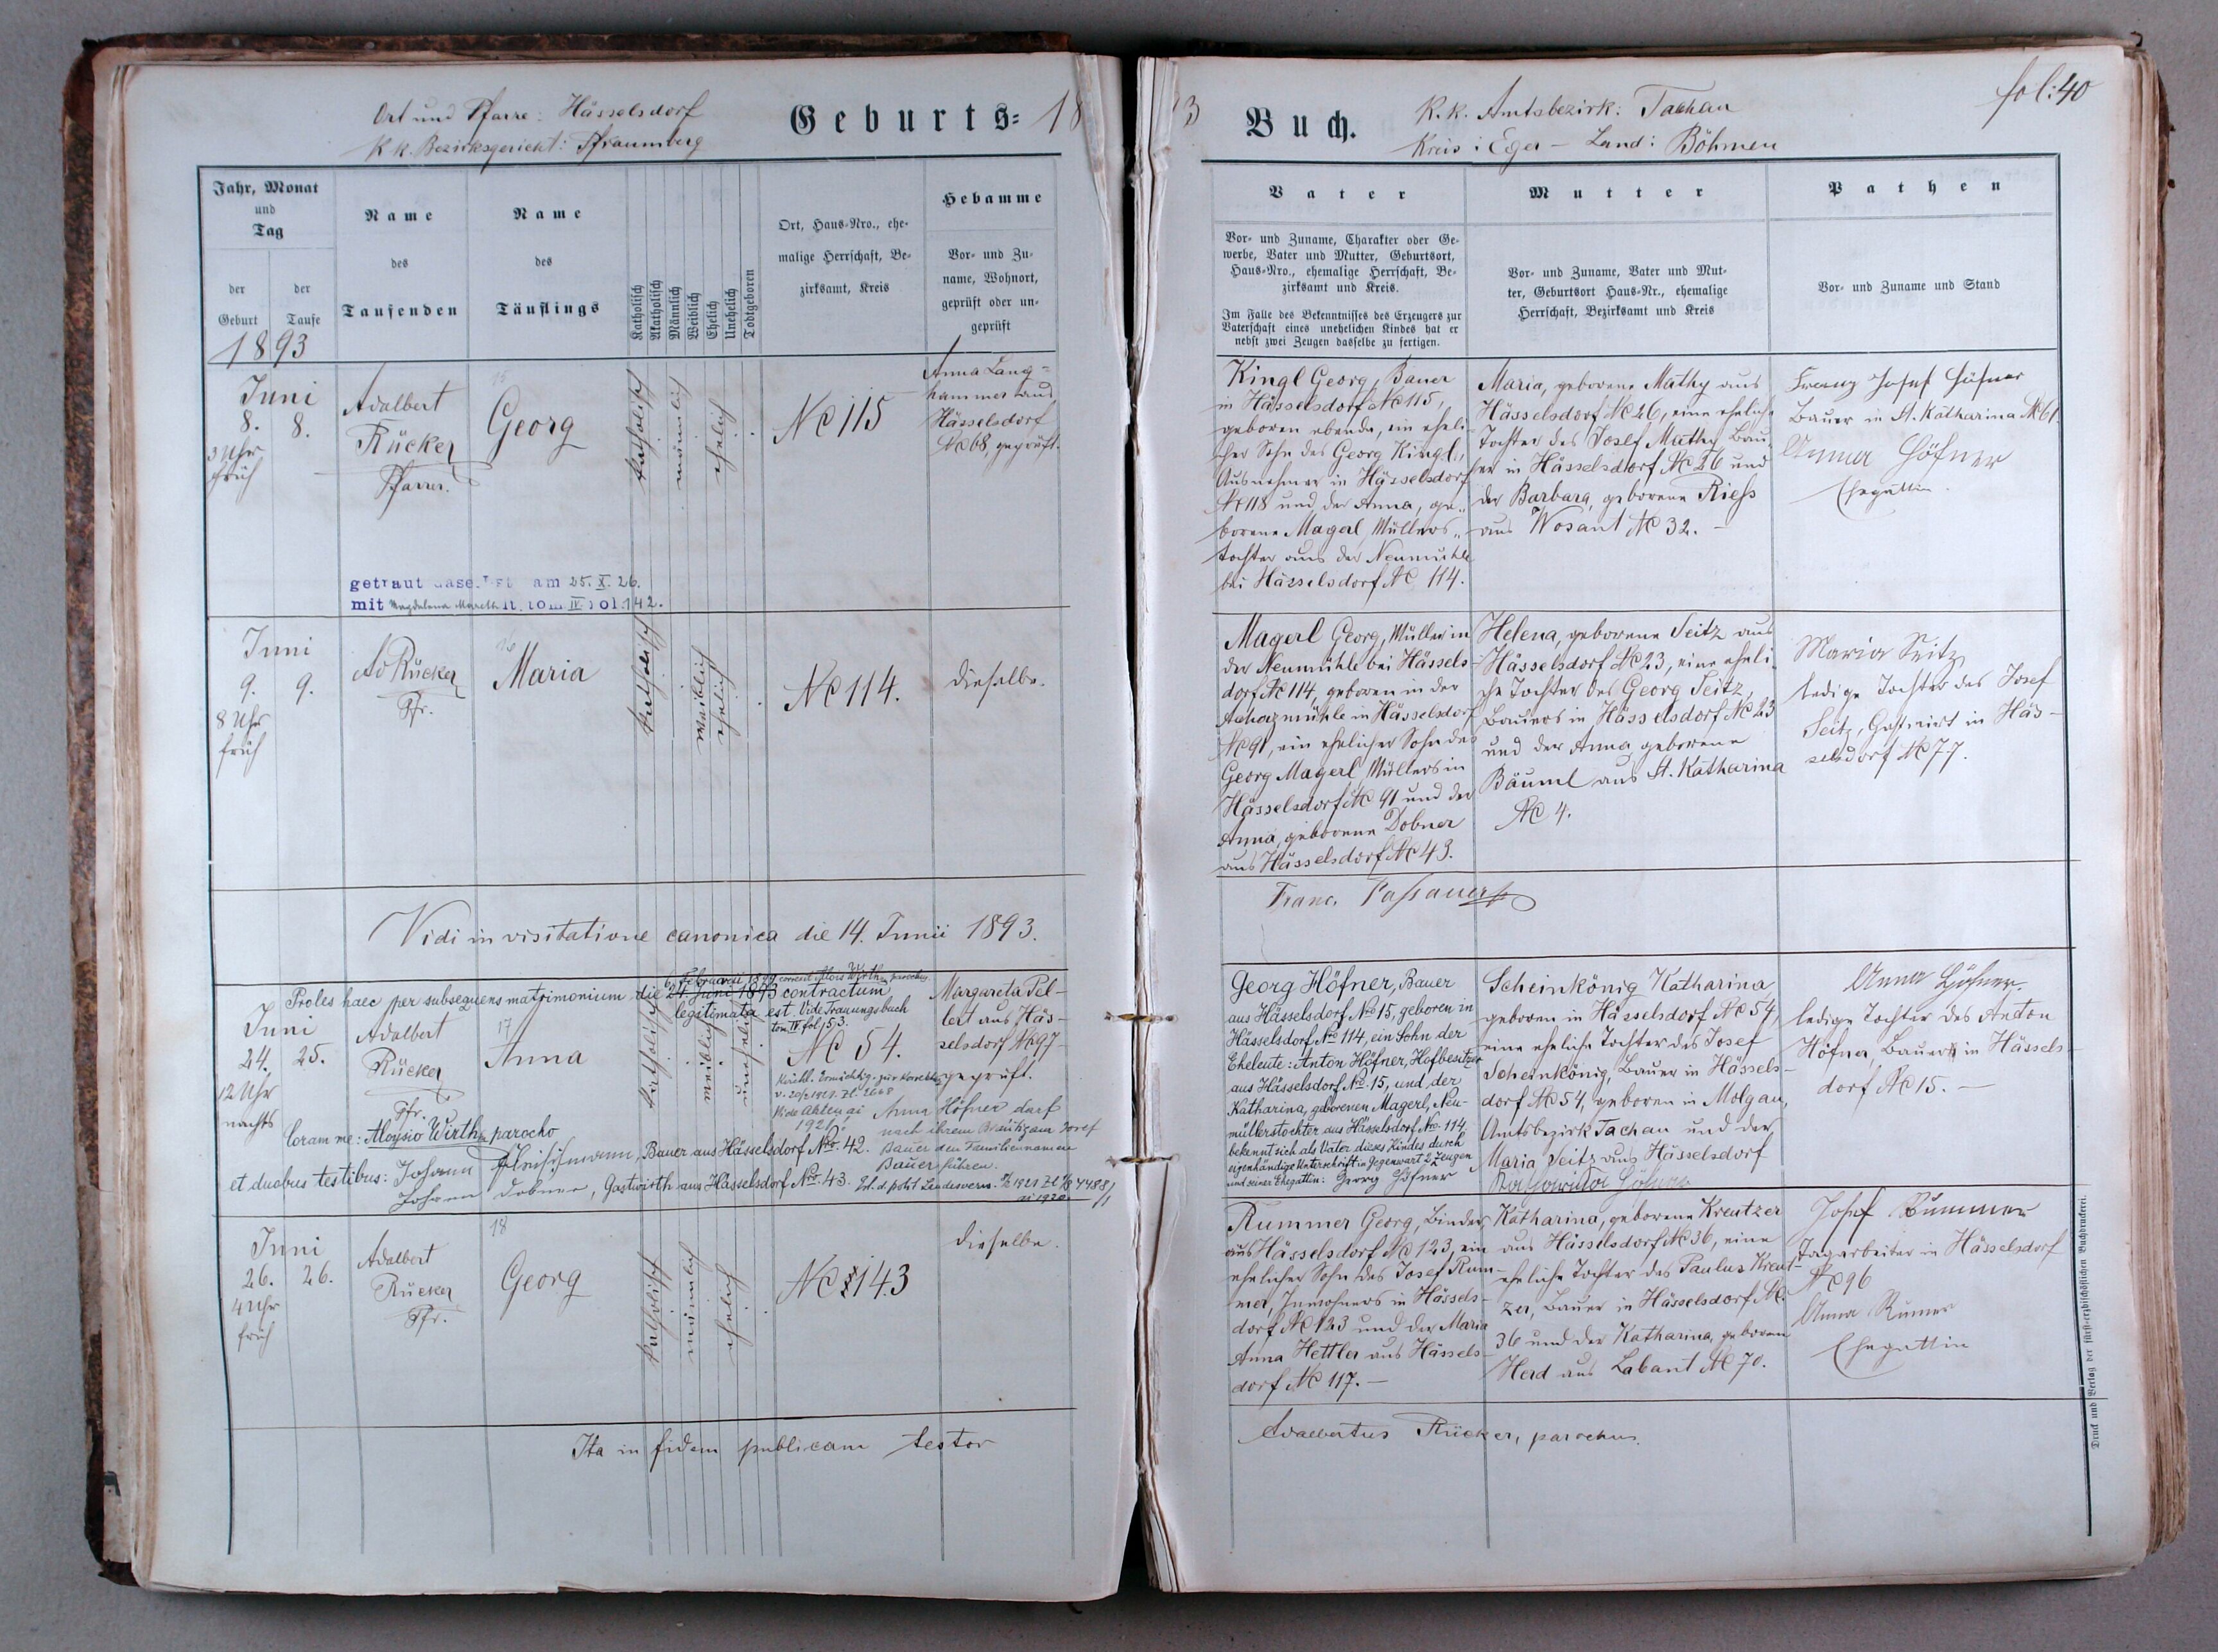 Ort und Pfarre: Hässelsdorf
K. k. Bezirksgericht: Pfraumberg
Geburts= 18
Jahr, Monat
und
Tag
der
Geburt
der
Taufe
1893
Name
des
Taufenden
Name
des
Täuflings
Katholisch
Akatholisch
Männlich
Weiblich
Ehelich
Unehelich
Todtgeboren
Ort, Haus-Nro., ehe-
malige Herrschaft, Be-
zirksamt, Kreis
Hebamme
Vor- und Zu-
name, Wohnort,
geprüft oder un-
geprüft
Juni
8. 8.
3 Uhr
früh
Adalbert
Rücker
Pfarrer.
15
Georg
katholisch
männlich
ehelich
No 115
Anna Lang-
hammer aus
Hässelsdorf
No 68, geprüft.
getraut daselbst am 25. X. 26.
mit Magdalena lt. tom. IV fol. 142.
Juni
9. 9.
8 Uhr
früh
Ad Rücker
Pfr.
16
Maria
katholisch
weiblich
ehelich
No 114.
dieselbe.
Vidi in visitatione canonica die 14. Junii 1893.
6. Februarii 1894 correxit Alois Wirth, parochus
Proles haec per subsequens matrimonium die 24. Juni 1893 contractum
legitimata est. Vide Trauungsbuch
tom IV. fol. 53.
Juni
24. 25.
12 Uhr
nachts
Adalbert
Rücker
Pfr.
17
Anna
katholisch
weiblich
unehelich
No 54.
Margareta Pel-
lert aus Häs-
selsdorf No 97
geprüft.
Vide Akten ai
1921.
Anna Höfner darf
nach ihrem Bräutigam Josef
Bauer den Familiennamen
Bauer führen.
Coram me: Aloysio Wirth, parocho
et duobus testibus: Johann Fleischmann, Bauer aus Hässelsdorf Nro. 42.
Johann Dobner, Gastwirth aus Hässelsdorf Nro. 43.
Juni
26. 26.
4 Uhr
früh
Adalbert
Rücker
Pfr.
18
Georg
katholisch
männlich
ehelich
No 143
dieselbe.
Ita in fidem publicam testor
3 Buch.
K. k. Amtsbezirk: Tachau
Kreis: Eger - Land: Böhmen
fol: 40
Vater
Vor- und Zuname, Charakter oder Ge-
werbe, Vater und Mutter, Geburtsort,
Haus-Nro., ehemalige Herrschaft, Be-
zirksamt und Kreis.
Im Falle des Bekenntnisses des Erzeugers zur
Vaterschaft eines unehelichen Kindes hat er
nebst zwei Zeugen dasselbe zu fertigen.
Mutter
Vor- und Zuname, Vater und Mut-
ter, Geburtsort Haus-Nr., ehemalige
Herrschaft, Bezirksamt und Kreis
Pathen
Vor- und Zuname und Stand
Kingl Georg, Bauer
in Hässelsdorf No 115,
geboren ebenda, ein eheli-
cher Sohn des Georg Kingl,
Ausnehmer in Hässelsdorf
No 118 und der Anna, ge-
borene Magerl, Müllers-
tochter aus der Neumühle
bei Hässelsdorf No 114.
Maria, geborene Mathy aus
Hässelsdorf No 26, eine eheliche
Tochter des Josef Mathy Bau-
er in Hässelsdorf No 26 und
der Barbara, geborene Riess
aus Wosant No 32. -
Franz Josef Höfner
Bauer in St. Katharina No 61.
Anna Höfner
Ehegattin.
Magerl Georg, Müller in
der Neumühle bei Hässels-
dorf No 114, geboren in der
in Hässelsdorf
No 91, ein ehelicher Sohn des
Georg Magerl, Müllers in
Hässelsdorf No 91 und der
Anna, geborene Dobner
aus Hässelsdorf No 43.
Helena, geborene Seitz aus
Hässelsdorf No 23, eine eheli-
che Tochter des Georg Seitz,
Bauers in Hässelsdorf No 23
und der Anna, geborene
Bäuml aus St. Katharina
No 4.
Maria Seitz
ledige Tochter des Josef
Seitz, Gastwirt in Häs-
selsdorf No 77.
Franc. Passauer
Georg Höfner, Bauer
aus Hässelsdorf Nro 15, geboren in
Hässelsdorf Nro 114, ein Sohn der
Eheleute: Anton Höfner, Hofbesitzer
aus Hässelsdorf No. 15, und der
Katharina, geborenen Magerl, Neu-
müllerstochter aus Hässelsdorf Nro. 114,
bekennt sich als Vater dieses Kindes durch
eigenhändige Unterschrift in Gegenwart 2 Zeugen
und seiner Ehegattin: Georg Höfner
Scheinkönig Katharina
geboren in Hässelsdorf No 54,
eine eheliche Tochter des Josef
Scheinkönig, Bauer in Hässels-
dorf No 54, geboren in Molgau,
Amtsbezirk Tachau und der
Maria Seitz aus Hässelsdorf
Katharina Höfner
Anna Höfner.
ledige Tochter des Anton
Höfner, Bauer in Hässels-
dorf No 15. -
Rummer Georg, Binder
aus Hässelsdorf No 123, ein
ehelicher Sohn des Josef Rum-
mer, Inwohners in Hässels-
dorf No 123 und der Maria
Anna Hettler aus Hässels-
dorf No 117. -
Katharina, geborene Kreutzer
aus Hässelsdorf No 36, eine
eheliche Tochter des Paulus Kreut-
zer, Bauer in Hässelsdorf No
36 und der Katharina, geboren
Herd aus Labant No 70.
Josef Rummer
Tagarbeiter in Hässelsdorf
No 96
Anna Rumer
Ehegattin
Adalbertus Rücker, parochus.
Druck und Verlag der fürst-erzbischöflichen Buchdruckerei.